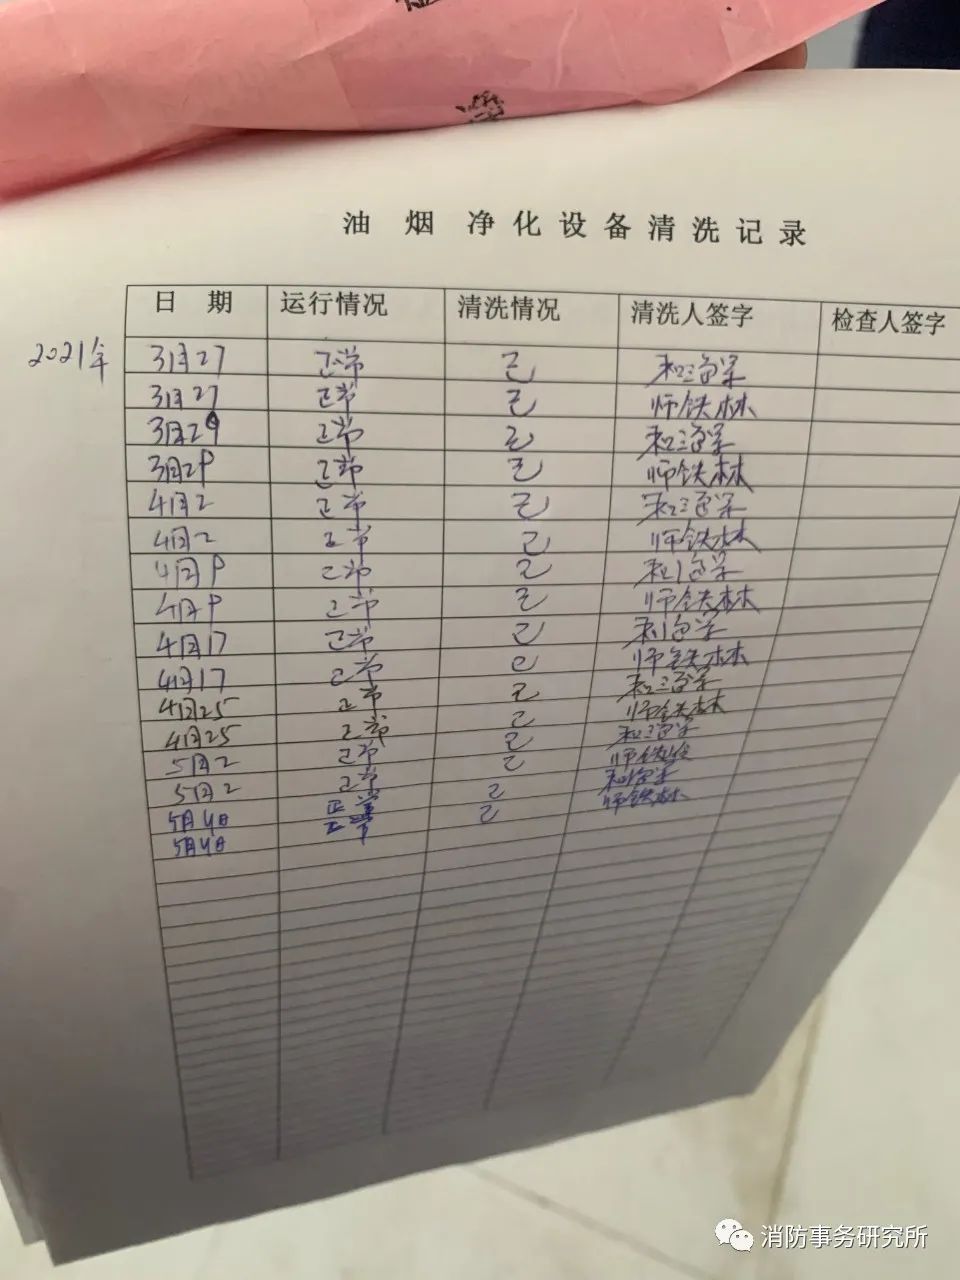 油烟净化设备清洗记录
日期 运行情况 清洗情况 清洗人签字 检查人签字
2021年 3月27 正常 已
3月27 正常 已 师铁林
3月29 正常 已
3月29 正常 已 师铁林
4月2 正常 已
4月2 正常 已 师铁林
4月9 正常 已
4月9 正常 已 师铁林
4月17 正常 已
4月17 正常 已 师铁林
4月25 正常 已
4月25 正常 已 师铁林
5月2 正常 已
5月2 正常 已 师铁林
5月4日 正常 已
5月4日 正常 已 师铁林
消防事务研究所